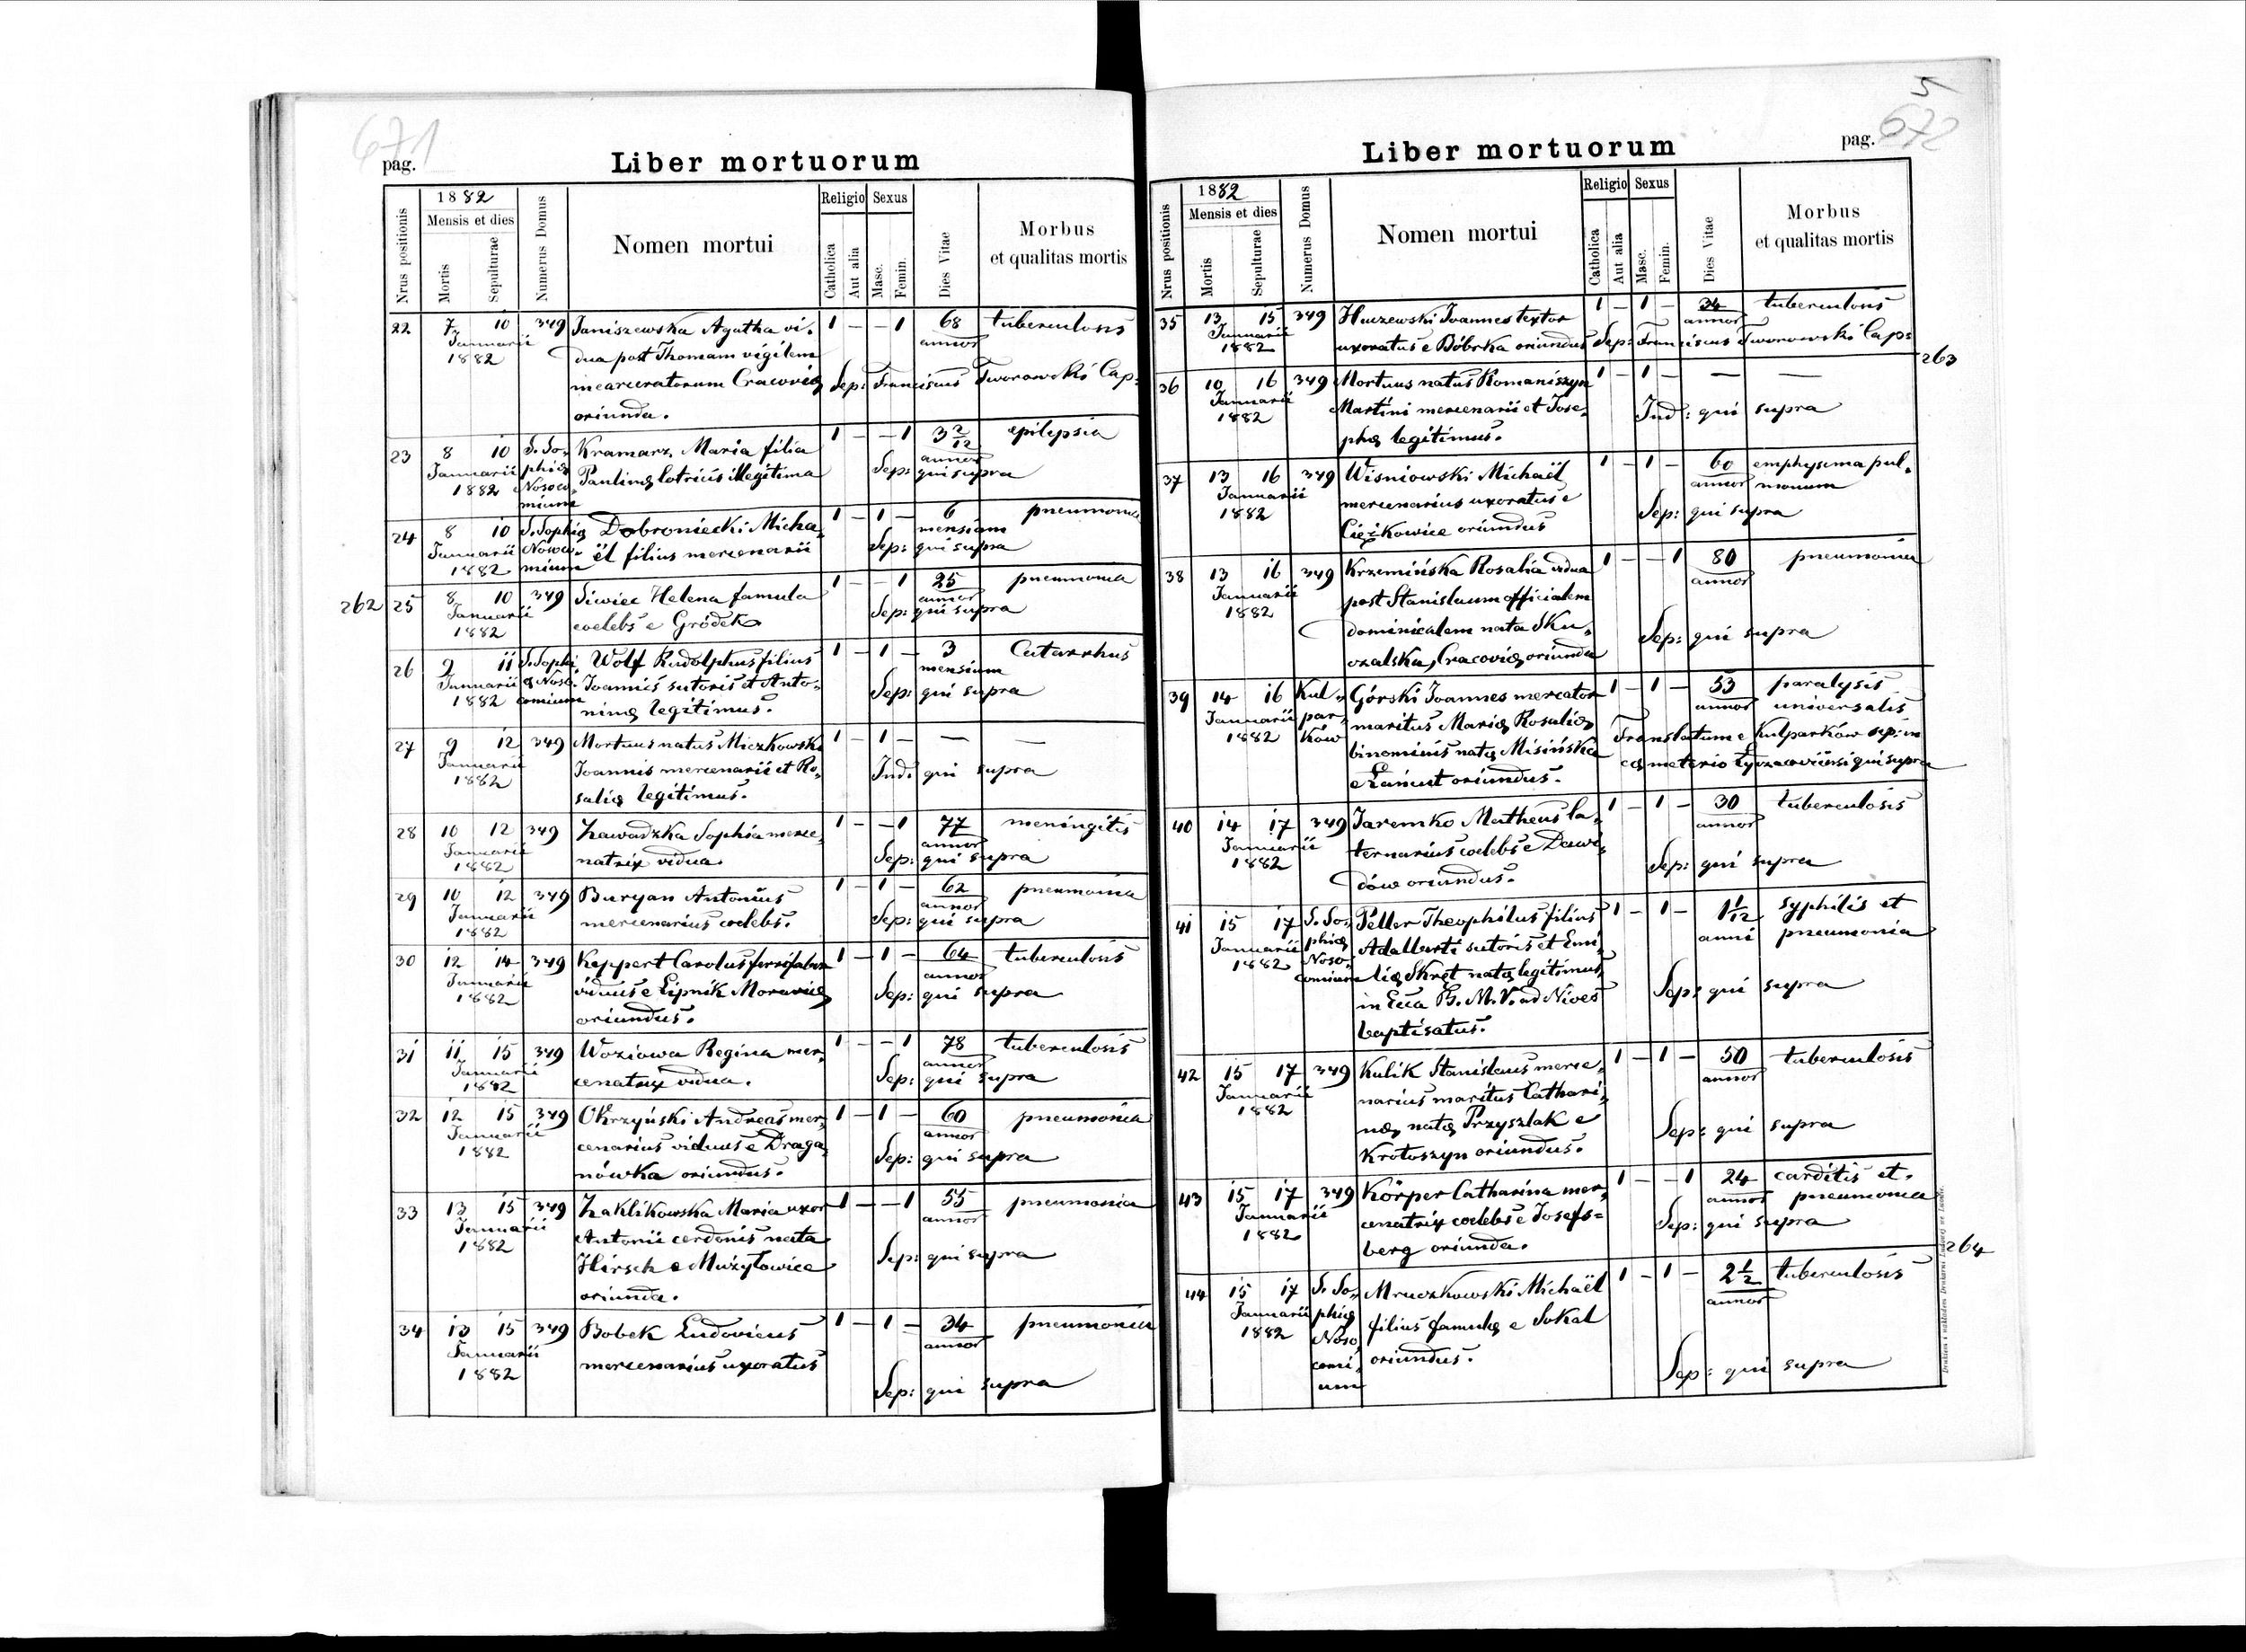 671
pag.
Liber mortuorum
Nrus positionis
1882
Mensis et dies
Mortis
Sepulturae
Numerus Domus
Nomen mortui
Religio
Catholica
Aut alia
Sexus
Masc.
Femin.
Dies Vitae
Morbus
et qualitas mortis
22 7 10 349 Janiszewska Agatha vi- 1 – – 1 68 tuberculosis
Januarii dua post Thomam vigilem annor
1882 incarceratorum Cracoviæ Sep: Franciscus Tworowski Cap:
oriunda.
23 8 10 S. So- Kramarz Maria filia 1 – – 1 3 2/12 epilepsia
Januarii phiæ Paulinæ lotricis illegitima annor Sep: qui supra
1882 Nosoco-
mium
24 8 10 S. Sophiæ Dobroniecki Micha- 1 – 1 – 6 pneumonia
Januarii Nosoco- ël filius mercenarii mensium Sep: qui supra
1882 mium
262 25 8 10 349 Siwiec Helena famula 1 – – 1 25 pneumonia
Januarii coelebs e Gródek annor Sep: qui supra
1882
26 9 11 S. Sophi- Wolf Rudolphus filius 1 – 1 – 3 Catarrhus
Januarii æ Noso- Joannis sutoris et Anto- mensium
1882 comium ninæ legitimus. Sep: qui supra
27 9 12 349 Mortuus natus Miczkowski 1 – 1 – — —
Januarii Joannis mercenarii et Ro- Ind: qui supra
1882 saliæ legitimus.
28 10 12 349 Zawadzka Sophia merce- 1 – – 1 77 meningitis
Januarii natrix vidua. annor
1882 Sep: qui supra
29 10 12 349 Buryan Antonius 1 – 1 – 62 pneumonia
Januarii mercenarius coelebs. annor
1882 Sep: qui supra
30 12 14 349 Keppert Carolus ferrifaber 1 – 1 – 64 tuberculosis
Januarii viduus e Lipnik Moraviæ annor
1882 oriundus. Sep: qui supra
31 11 15 349 Woziowa Regina mer- 1 – – 1 78 tuberculosis
Januarii cenatrix vidua. annor
1882 Sep: qui supra
32 12 15 349 Okrzyński Andreas mer- 1 – 1 – 60 pneumonia
Januarii cenarius viduus e Draga- annor
1882 nówka oriundus. Sep: qui supra
33 13 15 349 Zaklikowska Maria uxor 1 – – 1 55 pneumonia
Januarii Antonii cerdonis nata annor
1882 Hirsch e Mużyłowice Sep: qui supra
oriunda.
34 13 15 349 Bobek Ludovicus 1 – 1 – 34 pneumonia
Januarii mercenarius uxoratus annor
1882 Sep: qui supra
5
pag. 672
Liber mortuorum
Nrus positionis
1882
Mensis et dies
Mortis
Sepulturae
Numerus Domus
Nomen mortui
Religio
Catholica
Aut alia
Sexus
Masc.
Femin.
Dies Vitae
Morbus
et qualitas mortis
35 13 15 349 Huczewski Joannes textor 1 – 1 – 34 tuberculosis
Januarii uxoratus e Bóbrka oriundus annor Sep: Franciscus Tworowski Cap:
1882
263
36 10 16 349 Mortuus natus Romaniszyn 1 – 1 – — —
Januarii Martini mercenarii et Jose- Ind: qui supra
1882 phæ legitimus.
37 13 16 349 Wisniowski Michaël 1 – 1 – 60 emphysema pul-
Januarii mercenarius uxoratus e annor monum
1882 Ciężkowice oriundus Sep: qui supra
38 13 16 349 Krzemińska Rosalia vidua 1 – – 1 80 pneumonia
Januarii post Stanislaum officialem annor
1882 dominicalem nata Sku- Sep: qui supra
czalska, Cracoviæ oriunda
39 14 16 Kul- Górski Joannes mercator 1 – 1 – 53 paralysis
Januarii par- maritus Mariæ Rosaliæ annor universalis
1882 ków binominis natæ Misińska Translatum e Kulparków sep: in
e Łańcut oriundus. cæmeterio Łyczacoviensi qui supra
40 14 17 349 Jaremko Matheus la- 1 – 1 – 30 tuberculosis
Januarii ternarius coelebs e Dawi- annor
1882 dów oriundus. Sep: qui supra
41 15 17 S. So- Peller Theophilus filius 1 – 1 – 1 1/12 syphilis et
Januarii phiæ Adalberti sutoris et Emi- anni pneumonia
1882 Noso- liæ Skręt natæ legitimus,
comium in Ecca B. M. V. ad Nives Sep: qui supra
baptisatus.
42 15 17 349 Kulik Stanislaus merce- 1 – 1 – 50 tuberculosis
Januarii narius maritus Cathari- annor
1882 næ natæ Przyszlak e Sep: qui supra
Krotoszyn oriundus.
43 15 17 349 Körper Catharina mer- 1 – – 1 24 carditis et
Januarii cenatrix coelebs e Josefs= annor pneumonia
1882 berg oriunda. Sep: qui supra
264
44 15 17 S. So- Mruczkowski Michaël 1 – 1 – 2 1/2 tuberculosis
Januarii phiæ filius famulæ e Sokal annor
1882 Noso- oriundus.
comi- Sep: qui supra
um